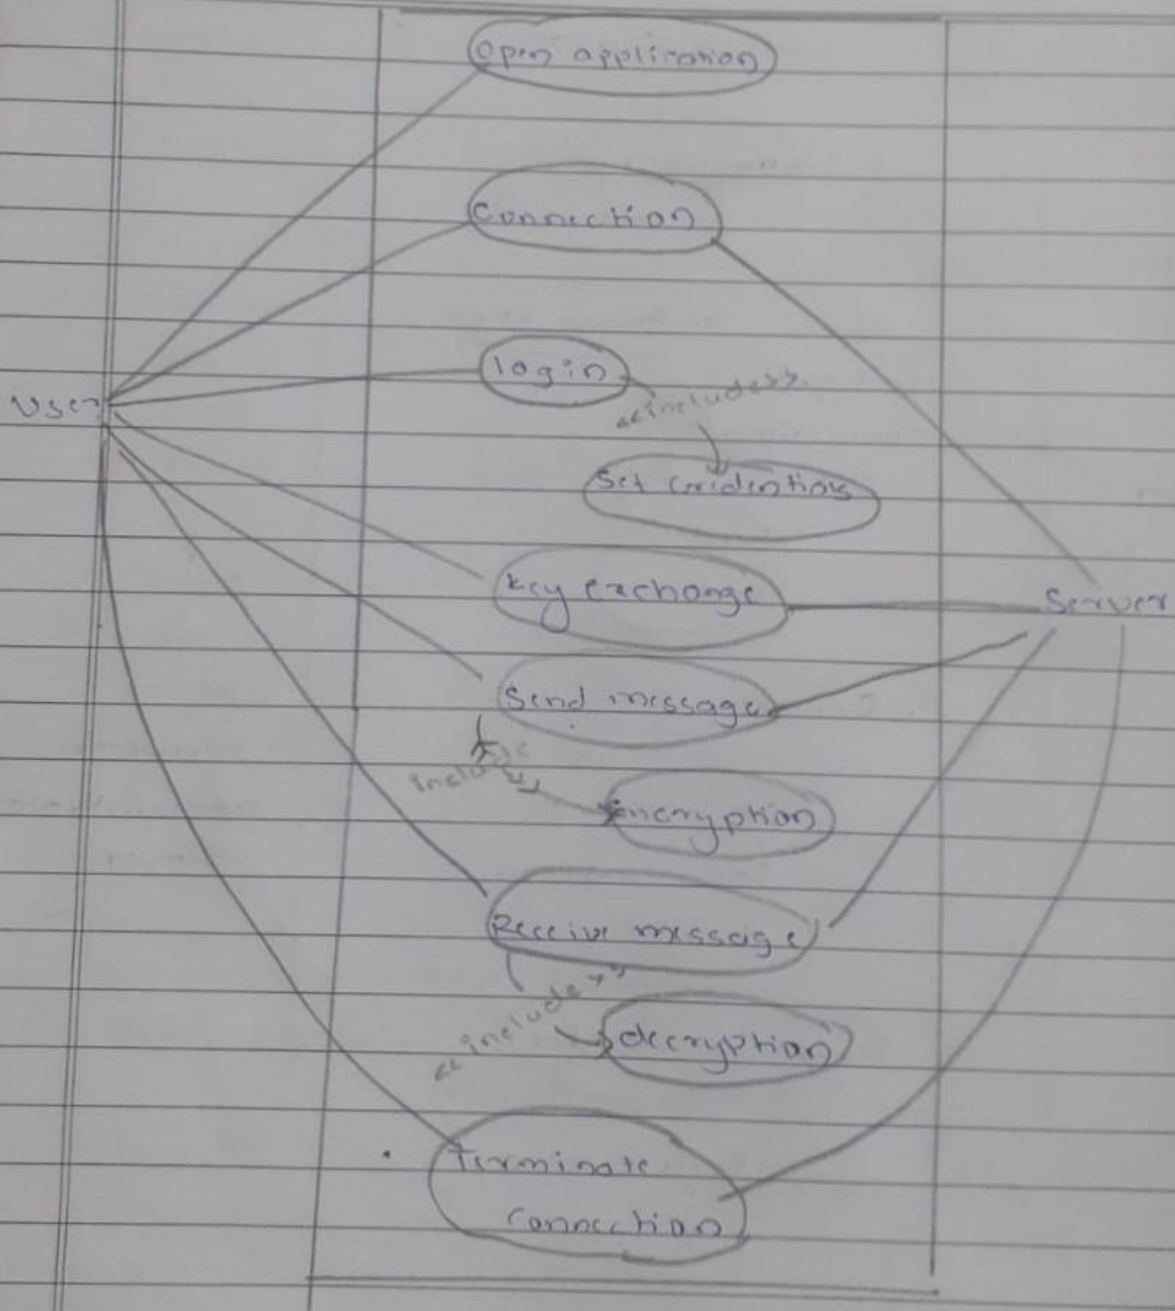 Open application
Connection
login
<<include>>
User
Set
key exchange
Server
Send message
include
Encryption
Receive message
<<include>>
decryption
Terminate
Connection